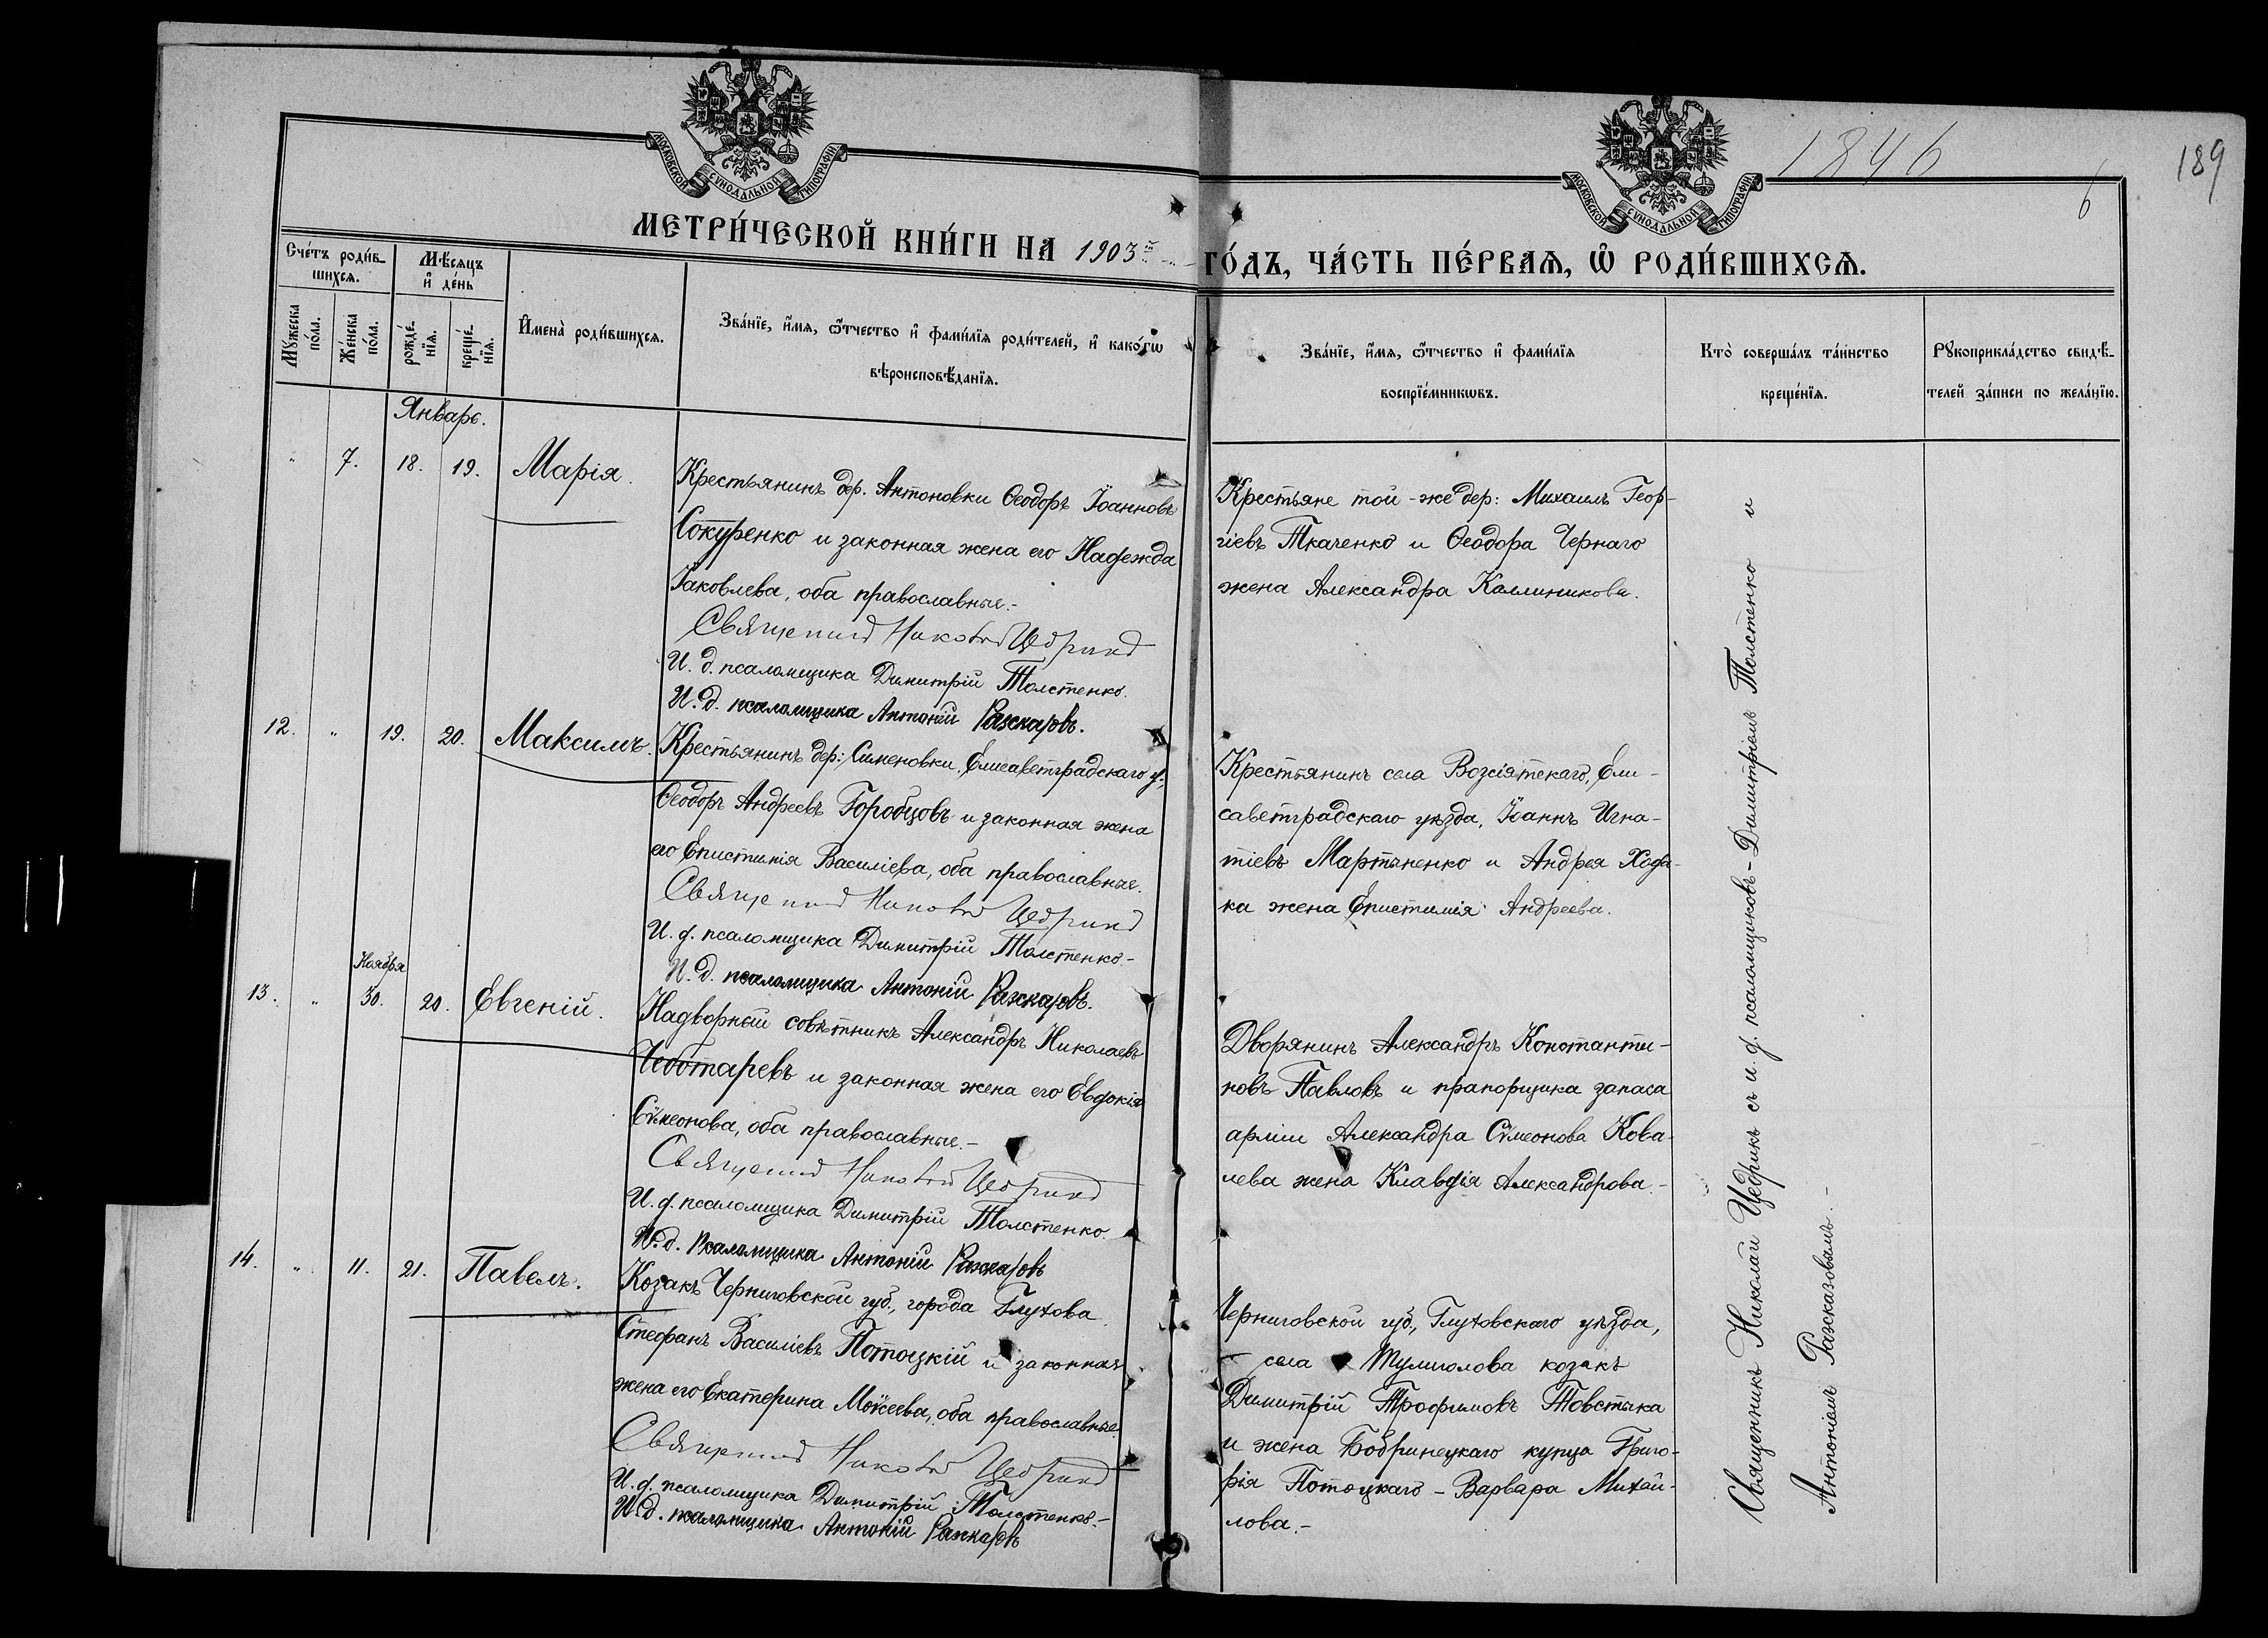 МОСКОВСКОЙ СУНОДАЛЬНОЙ ТИПОГРАФІИ
МОСКОВСКОЙ СУНОДАЛЬНОЙ ТИПОГРАФІИ
1846
6
189
МЕТРИ́ЧЕСКОЙ КНИ́ГИ НА 1903й ГО́ДЪ, ЧА́СТЬ ПЕ́РВАЯ, Ѡ РОДИ́ВШИХСЯ.
Сче́тъ роди́в-
шихся.
Мѣ́сяцъ
и де́нь
Мꙋ́жеска по́ла.
Же́нска по́ла.
рожде́-
нїя.
креще́-
нїя.
Имена̀ роди́вшихся.
Зва́нїе, и́мя, ѻ҆́тчество и фами́лїя роди́телей, и како́гѡ
вѣроисповѣ́данїя.
Зва́нїе, и́мя, ѻ҆́тчество и фами́лїя
воспрїе́мникѡвъ.
Кто̀ соверша́лъ та́инство
креще́нїя.
Рꙋкоприкла́дство свидѣ́-
телей за́писи по жела́нїю.
Январь.
" 7. 18. 19. Марія.
Крестьянинъ дер. Антоновки Ѳеодоръ Іоанновъ
Сокуренко и законная жена его Надежда
Іаковлева, оба православные.-
Священникъ Николай Цедрикъ
И. д. псаломщика Димитрій Толстенко.
И. д. псаломщика Антоній Разсказовъ.
Крестьяне той-же дер: Михаилъ Геор-
гіевъ Ткаченко и Ѳеодора Чернаго
жена Александра Каллиникова.
12. " 19. 20. Максимъ.
Крестьянинъ дер: Сименовки, Елисаветградскаго у.,
Ѳеодоръ Андреевъ Горобцовъ и законная жена
его Епистимія Василіева, оба православные.
Священникъ Николай Цедрикъ
И. д. псаломщика Димитрій Толстенко-
И. д. псаломщика Антоній Разсказовъ.
Крестьянинъ села Возсіятскаго, Ели-
саветградскаго уѣзда, Іоаннъ Игна-
тіевъ Мартыненко и Андрея Хода-
ка жена Епистимія Андреева.
Ноября
13. " 30. 20. Евгеній.
Надворный совѣтникъ Александръ Николаевъ
Чеботаревъ и законная жена его Евдокія
Сѵмеонова, оба православные.-
Священникъ Николай Цедрикъ
И. д. псаломщика Димитрій Толстенко.
И. д. псаломщика Антоній Разсказовъ
Дворянинъ Александръ Константи-
новъ Павловъ и прапорщика запаса
арміи Александра Сѵмеонова Кова-
лева жена Клавдія Александрова.-
14. " 11. 21. Павелъ.
Козакъ Черниговской губ., города Глухова
Стефанъ Василіевъ Потоцкій и законная
жена его Екатерина Моѵсеева, оба православные.
Священникъ Николай Цедрикъ
И. д. псаломщика Димитрій Толстенко.-
И. д. псаломщика Антоній Разсказовъ
Черниговской губ., Глуховскаго уѣзда,
села Тулиголова козакъ
Димитрій Трофимовъ Товстыка
и жена Бобринецкаго купца Григо-
рія Потоцкаго - Варвара Михай-
лова.-
Священникъ Николай Цедрикъ съ и. д. псаломщиковъ - Димитріемъ Толстенко и
Антоніемъ Разсказовымъ.-